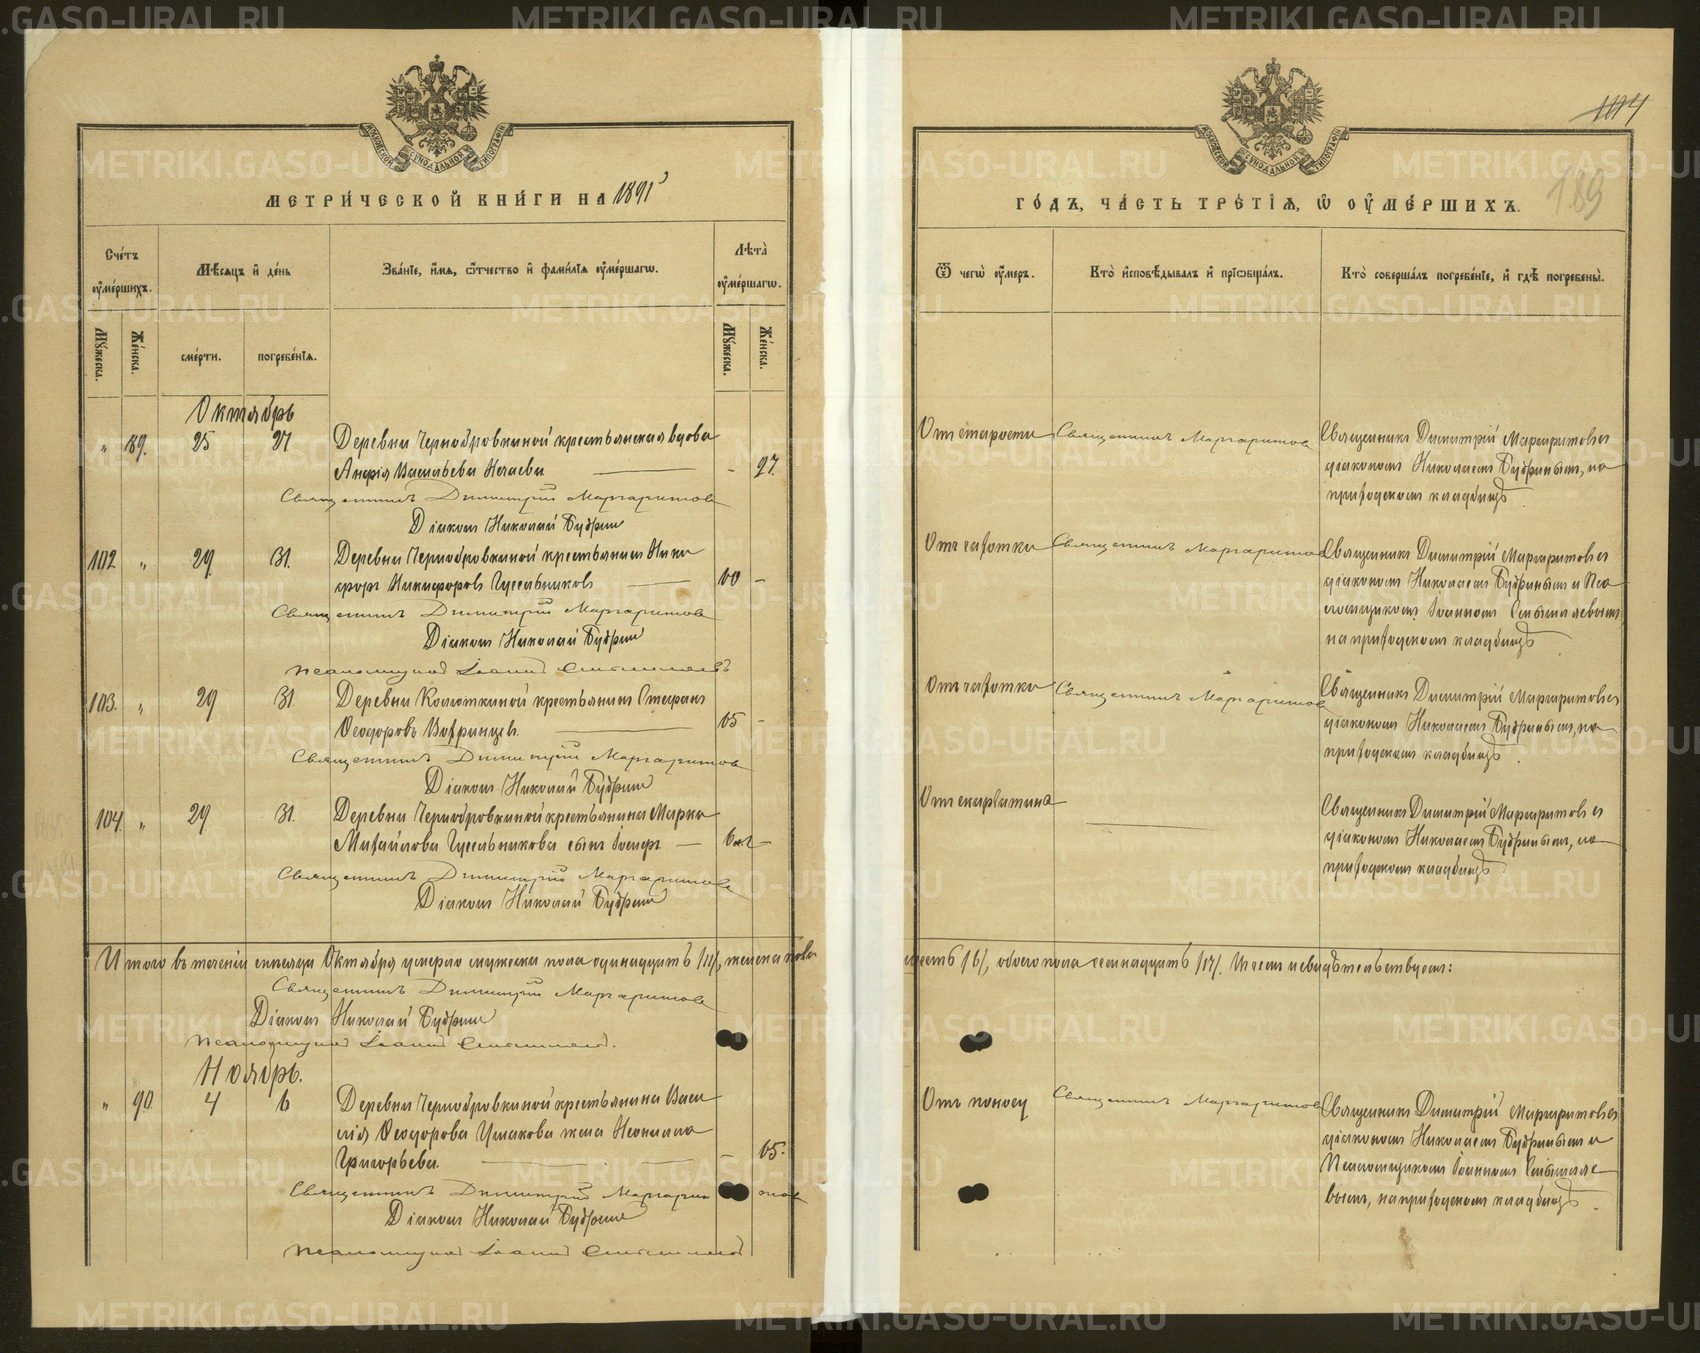 МЕТРИ́ЧЕСКОЙ КНИ́ГИ НА 1891
Сче́тъ ᲂу҆ме́ршихъ.
Мѣ́сяцъ и҆ де́нь
Зва́нїе, и҆́мя, ѻ҆́тчество и҆ фами́лїя ᲂу҆ме́ршагѡ.
Лѣта̀ ᲂу҆ме́ршагѡ.
Мꙋ́жеска.
Же́нска.
сме́рти.
погребе́нїя.
Мꙋ́жеска.
Же́нска.
Октябрь
" 89. 25 27 Деревни Чернобровкиной крестьянская вдова
Анфія Васильева Нечаева — 97.
Священникъ Димитрій Маргаритовъ
Діаконъ Николай Бубринъ
102 " 29. 31. Деревни Чернобровкиной крестьянинъ Ники
форъ Никифоровъ Гусельниковъ 60 —
Священникъ Димитрій Маргаритовъ
Діаконъ Николай Бубринъ
Псаломщикъ Іоаннъ
103. " 29 31. Деревни Колюткиной крестьянинъ Стефанъ
Ѳеодоровъ Вотринцевъ. 65 —
Священникъ Димитрій Маргаритовъ
Діаконъ Николай Бубринъ
104. " 29 31. Деревни Чернобровкиной крестьянина Марка
Михайлова Гусельникова сынъ Іосифъ — 6 м. —
Священникъ Димитрій Маргаритовъ
Діаконъ Николай Бубринъ
Итого въ теченіи месяца Октября умерло мужеска пола одинадцать /11/, женска пола
Священникъ Димитрій Маргаритовъ
Діаконъ Николай Бубринъ
Псаломщикъ Іоаннъ
Ноябрь.
" 90. 4 6 Деревни Чернобровкиной крестьянина Васи
лія Ѳеодорова Ушакова жена Неонила
Григорьева. — 65.
Священникъ Димитрій Маргаритовъ
Діаконъ Николай Бубринъ
Псаломщикъ Іоаннъ
104
189
ГО́ДЪ, ЧА́СТЬ ТРЕ́ТЇѦ, Ѡ҆ ОУ҆МЕ́РШИХЪ.
Ѿ чегѡ̀ ᲂу҆́меръ.
Кто̀ и҆сповѣ́дывалъ и҆ прїѡбща́лъ.
Кто̀ соверша́лъ погребе́нїе, и҆ гдѣ̀ погребены̀.
Отъ старости
Священникъ Маргаритовъ
Священникъ Димитрій Маргаритовъ съ
діакономъ Николаемъ Бубринымъ, на
приходскомъ кладбищѣ.
Отъ чахотки
Священникъ Маргаритовъ
Священникъ Димитрій Маргаритовъ съ
діакономъ Николаемъ Бубринымъ и Пса
ломщикомъ Іоанномъ
на приходскомъ кладбищѣ.
Отъ чахотки
Священникъ Маргаритовъ
Священникъ Димитрій Маргаритовъ съ
діакономъ Николаемъ Бубринымъ, на
приходскомъ кладбищѣ.
Отъ скарлатина
Священникъ Димитрій Маргаритовъ съ
діакономъ Николаемъ Бубринымъ, на
приходскомъ кладбищѣ
шесть /6/, обоего пола семнадцать /17/. Въ чемъ и свидѣтельствуемъ:
Отъ поносу
Священникъ Маргаритовъ
Священникъ Димитрій Маргаритовъ съ
діакономъ Николаемъ Бубринымъ и
Псаломщикомъ Іоанномъ
вымъ, на приходскомъ кладбищѣ.
METRIKI.GASO-URAL.RU